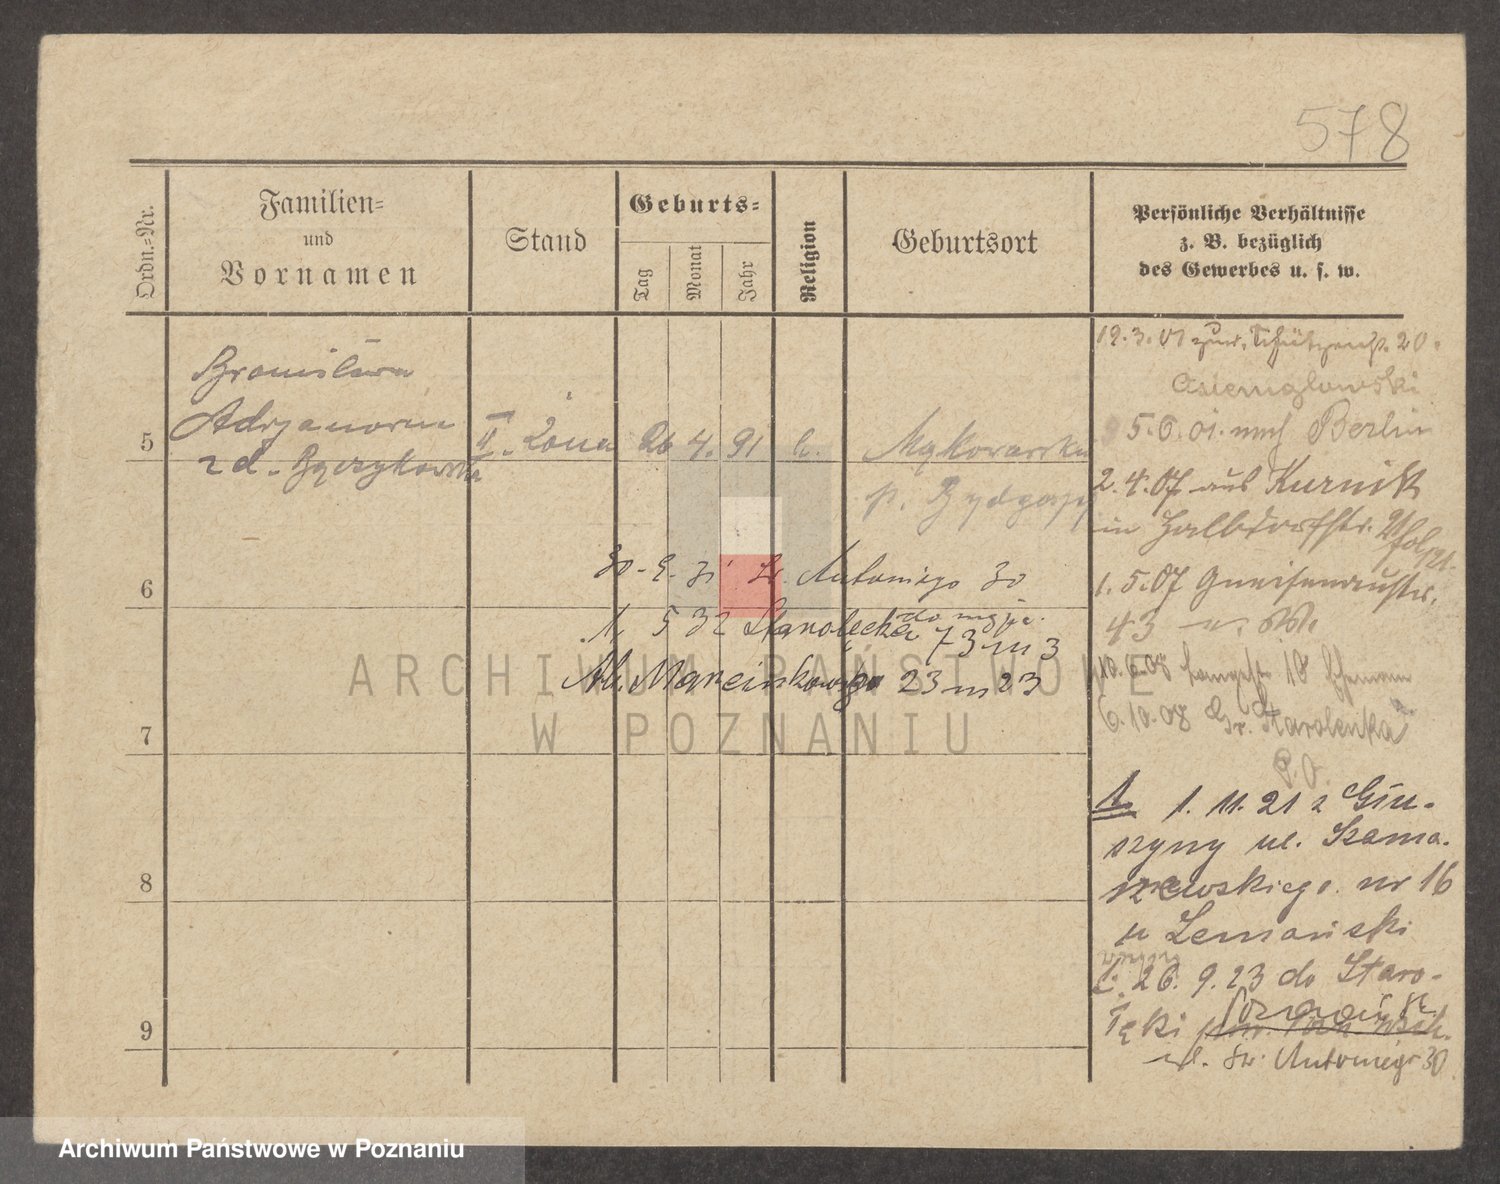 578
Ordn.-Nr.
Familien-
und
Vornamen
Stand
Geburts-
Tag
Monat
Jahr
Religion
Geburtsort
Persönliche Verhältnisse
z. B. bezüglich
des Gewerbes u. s. w.
Bronisława
5
II. Żona 26 4. 91 k. Mąkowarsko
z d.
p. Bydgoszcz
6
30 - 9 - 31 Św. Antoniego 30
1. 5 32 Starołęcka 73 m 3
Al. Marcinkowskiego 23 m 23
7
8
9
19.3.01 Schützenstr. 20.
5.6.01. nach Berlin
2.4.07 aus Kurnik
in Halbdorfstr.
1.5.07 Gneisenaustr.
43
10.6.08 18 Ehemann
6.10.08 Gr. Starolenka
P.O.
1. 11. 21 z Głu-
szyny ul. Szama-
rzewskiego nr 16
u Lemański
26. 9. 23 do Staro-
łęki
ul. Św. Antoniego 30
ARCHIWUM PAŃSTWOWE
W POZNANIU
Archiwum Państwowe w Poznaniu